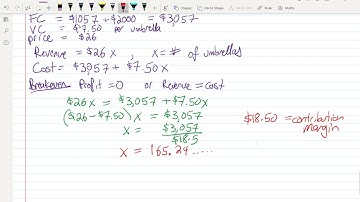 FC = $1057 + $2000 = $3,057
VC = $7.50 per umbrella
price = $26
Revenue = $26x , x = # of umbrellas
Cost = $3,057 + $7.50x
Breakeven Profit = 0 or Revenue = cost
$26x = $3,057 + $7.50x
($26 - $7.50)x = $3,057
x = $3,057
$18.5
$18.50 = contribution
margin
x = 165.24.....